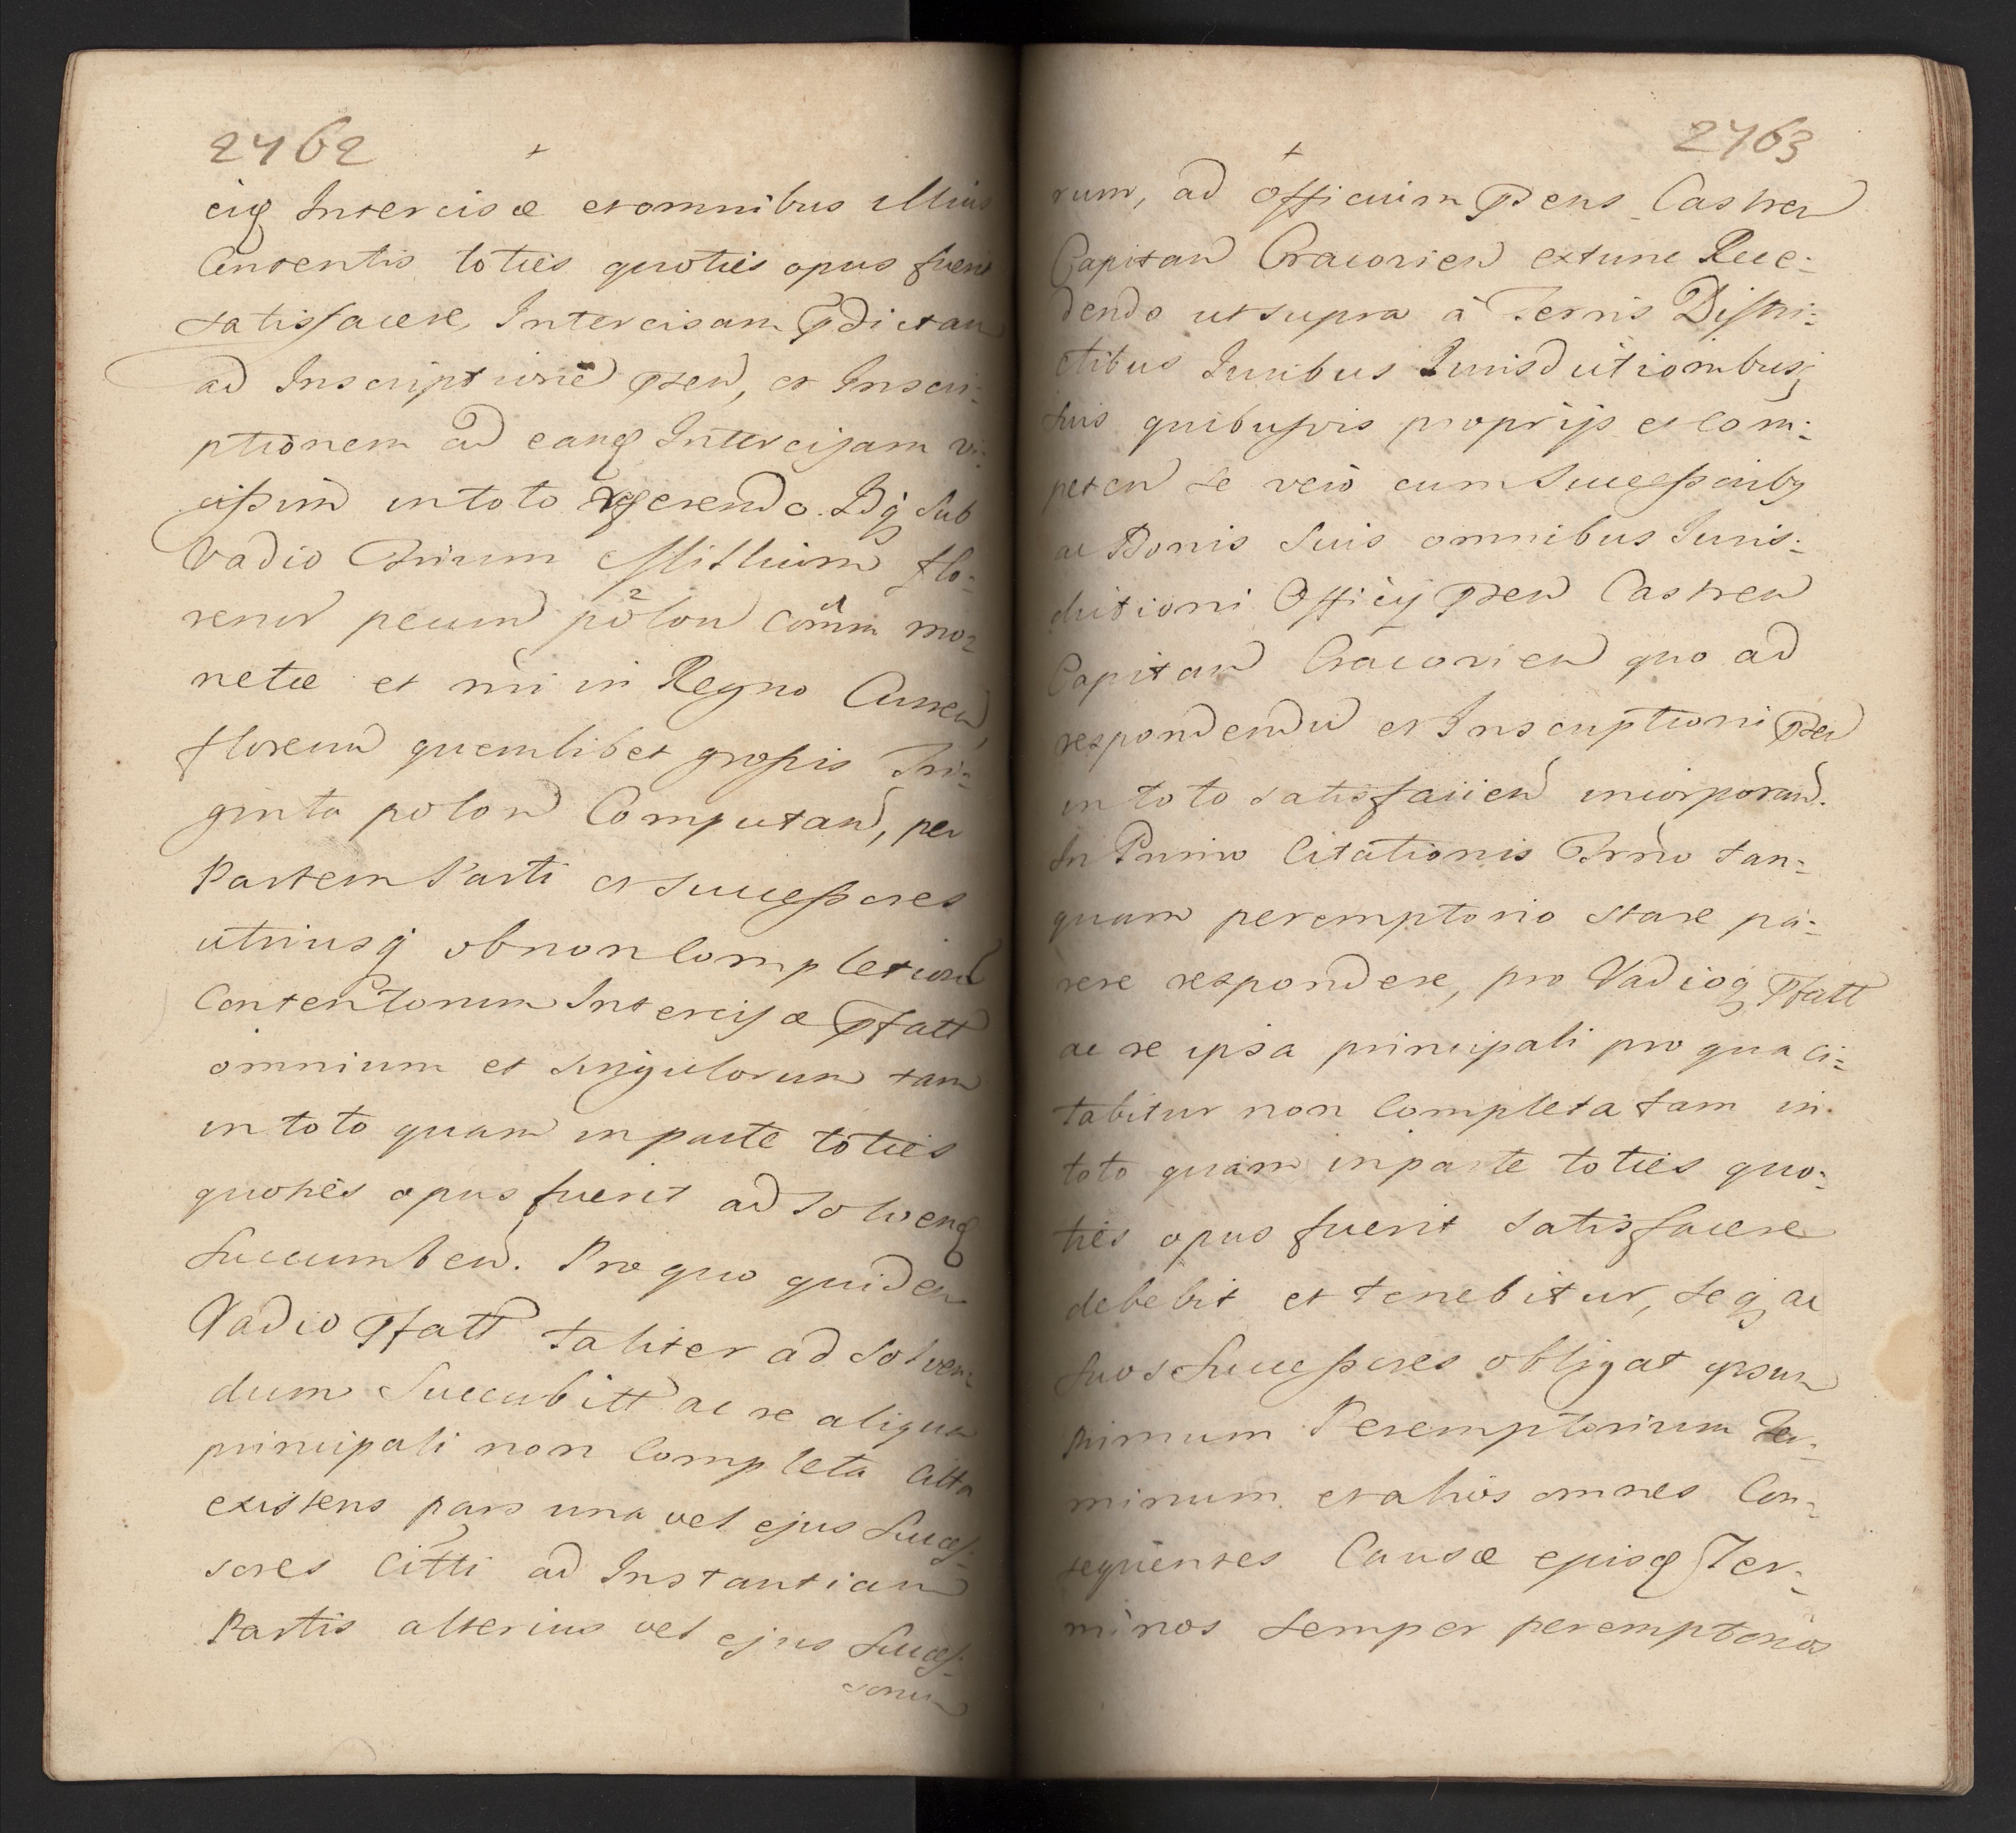 2462
eiq Intercisæ et omnibus illius
Contentis toties quoties opus fuerit
satisfacere, Intercisam pdictam
ad Inscriptione psen, et Inscri-
ptionem ad eanq Intercisam vi-
cissim in toto referendo. Idq sub
Vadio Trium Millium flo-
renor pecun polon comm mo-
netæ et nri in Regno Curren,
florenu quemlibet grossis Tri-
ginta polon Computan, per
Partem Parti et Successores
utriusq ob non Completion
Contentorum Intercisæ pfatt
omnium et singulorum tam
in toto quam in parte toties
quoties opus fuerit ad solvenq
succumben. Pro quo quidem
Vadio pfatt taliter ad solven-
dum succubitt ac re aliqua
principali non Completa Citta
existens pars una vel ejus Succes-
sores Citti ad Instantiam
Partis alterius vel ejus Succes-
sorum
2463
rum, ad Officium psens Castren
Capitan Cracovien extunc Rece-
dendo ut supra à Terris Distri-
ctibus Iuribus Iurisdictionibusq
suis quibusvis proprijs et Com-
peten se vero cum Successoribq
ac Bonis suis omnibus Iuris-
dictioni Officij psen Castren
Capitan Cracovien quo ad
respondendu et Inscriptioni psen
in toto satisfacien incorporan.
In Primo Citationis Trno tan-
quam peremptorio stare pa-
rere respondere, pro Vadioq pfatt
ac re ipsa principali pro qua ci-
tabitur non Completa tam in
toto quam in parte toties quo-
ties opus fuerit satisfacere
debebit et tenebitur, seq ac
suos Successores obligat ipsum
primum Peremptorium Ter-
minum et alios omnes Con-
sequentes Causæ episq Ter-
minos semper peremptorios